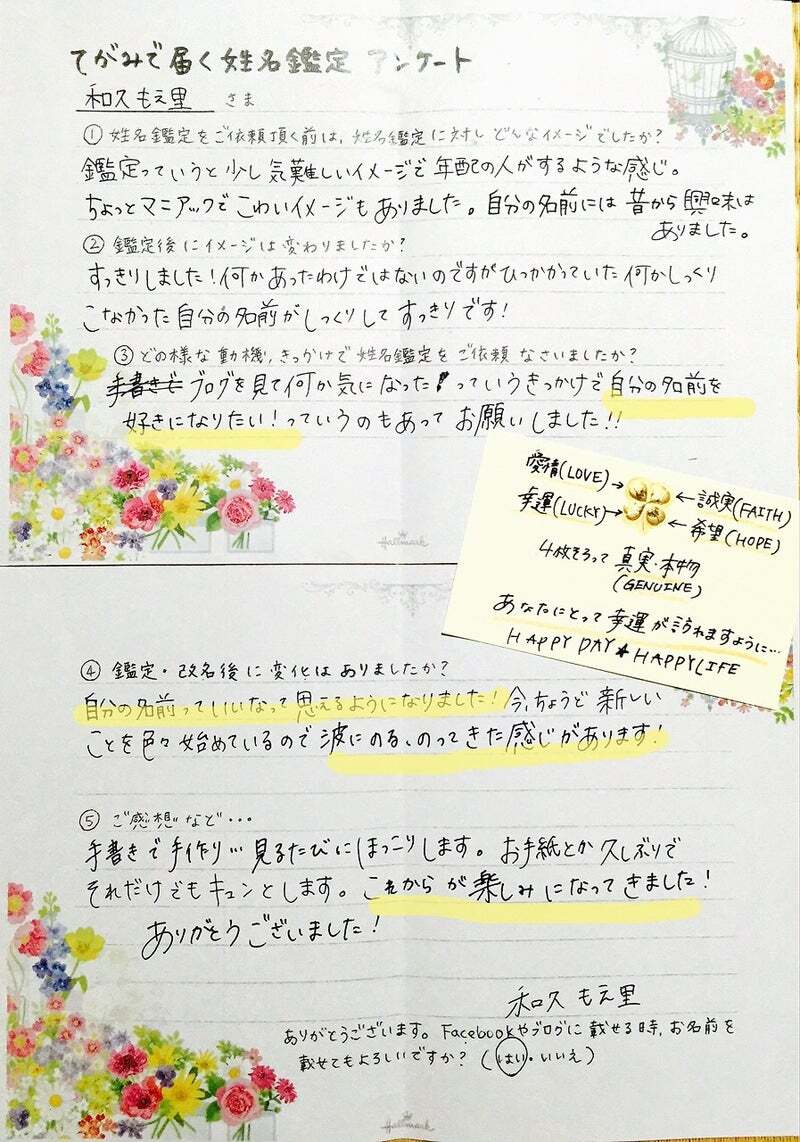 てがみで届く姓名鑑定 アンケート
和久 もえ里 さま
① 姓名鑑定をご依頼頂く前は、姓名鑑定に対し どんなイメージでしたか?
鑑定っていうと少し気難しいイメージで年配の人がするような感じ。
ちょっとマニアックでこわいイメージもありました。自分の名前には昔から興味は
ありました。
② 鑑定後にイメージは変わりましたか?
すっきりしました!何かあったわけではないのですがひっかかっていた何かしっくり
こなかった自分の名前がしっくりしてすっきりです!
③ どの様な動機、きっかけで姓名鑑定をご依頼なさいましたか?
手書きで ブログを見て何か気になった!っていうきっかけで自分の名前を
好きになりたい!っていうのもあってお願いしました!!
Hallmark
愛情(LOVE)→ ←誠実(FAITH)
幸運(LUCKY)→ ←希望(HOPE)
4枚そろって 真実・本物
(GENUINE)
あなたにとって幸運が訪れますように…
HAPPY DAY★HAPPY LIFE
④ 鑑定・改名後に変化はありましたか?
自分の名前っていいなって思えるようになりました!今、ちょうど新しい
ことを色々始めているので波にのる、のってきた感じがあります!
⑤ ご感想など・・・
手書きで手作り…見るたびにほっこりします。お手紙とか久しぶりで
それだけでもキュンとします。これからが楽しみになってきました!
ありがとうございました!
和久 もえ里
ありがとうございます。Facebookやブログに載せる時、お名前を
載せてもよろしいですか?(はい・いいえ)
Hallmark